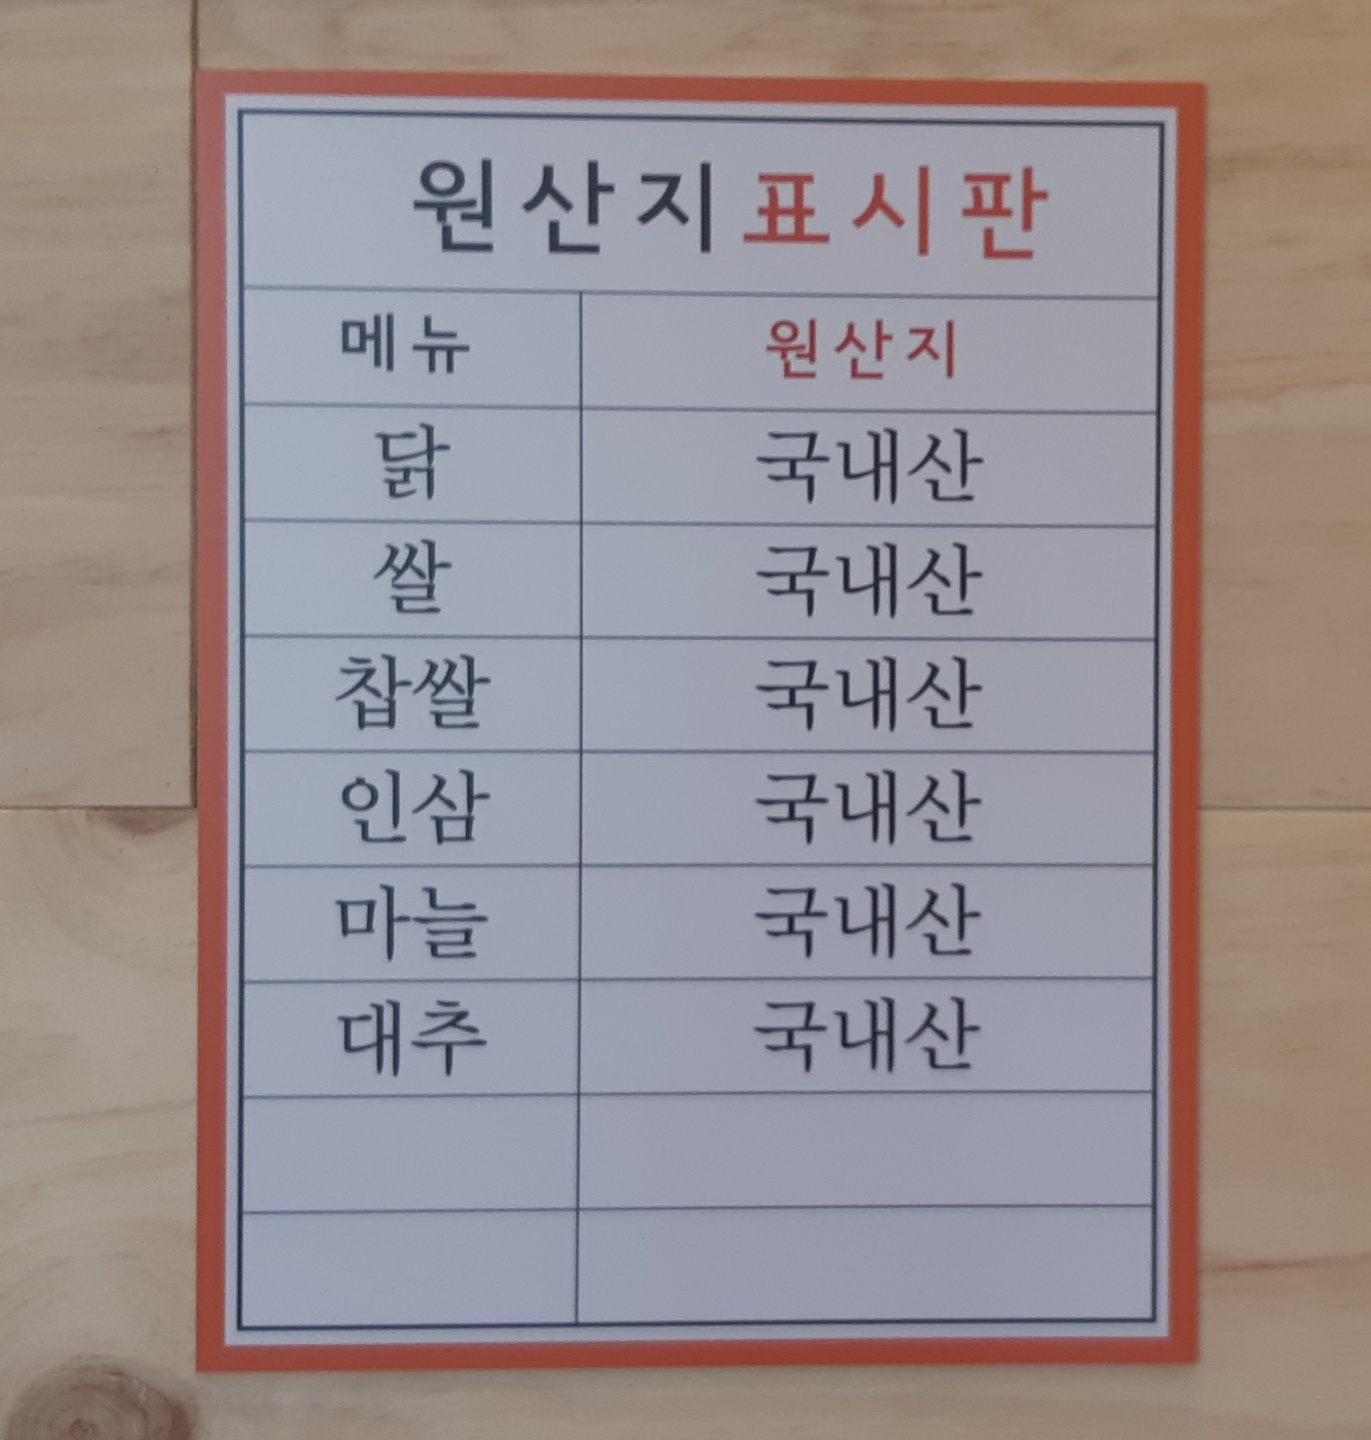 원산지표시판
메뉴 원산지
닭 국내산
쌀 국내산
찹쌀 국내산
인삼 국내산
마늘 국내산
대추 국내산